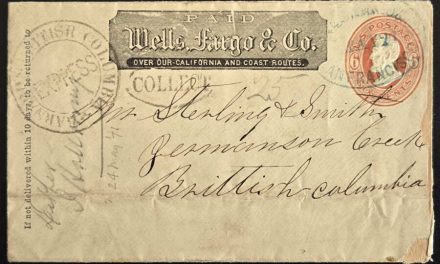 PAID
Wells, Fargo & Co.
OVER OUR CALIFORNIA AND COAST ROUTES.
BRITISH COLUMBIA
EXPRESS
COLLECT
25
SAN FRANCISCO
U.S. POSTAGE
6
6
CENTS
If not delivered within 10 days, to be returned to
24 Aug 71
Mr Sterling & Smith
Germanson Creek
Brittish Columbia